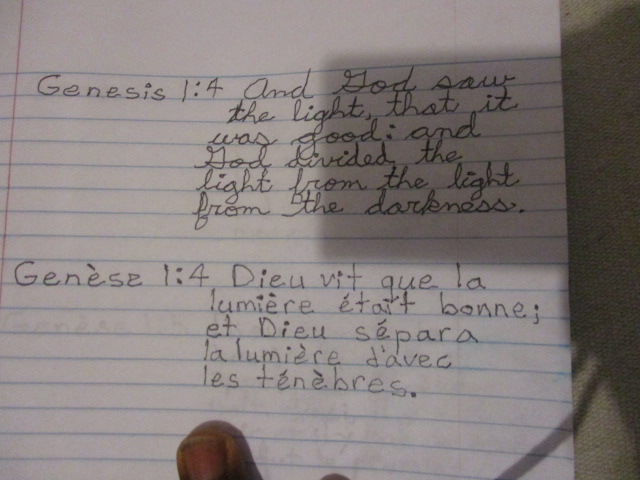 Genesis 1:4 And God saw
the light, that it
was good: and
God divided the
light from the light
from the darkness.
Genèse 1:4 Dieu vit que la
lumière était bonne;
et Dieu sépara
la lumière d'avec
les ténèbres.